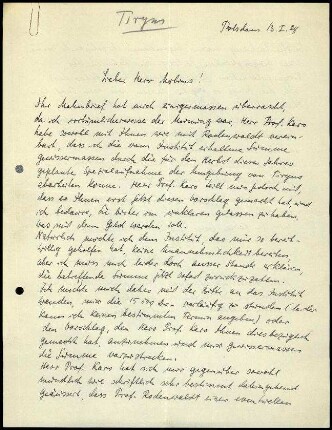 Tiryns
Potsdam 13.I.28
Lieber Herr Möbius!
Ihr Mahnbrief hat mich einigermassen überrascht,
da ich irrtümlicherweise der Meinung war, Herr Prof. Karo
habe sowohl mit Ihnen wie mit Rodenwaldt verein-
bart, dass ich die vom Institut erhaltene Summe
gewissermassen durch die für den Herbst dieses Jahres
geplante Spezialaufnahme der Umgebung von Tiryns
abarbeiten könne. Herr Prof. Karo teilt mir jedoch mit,
dass er Ihnen erst jetzt diesen Vorschlag gemacht hat, und
ich bedaure, Sie bisher im unklaren gelassen zu haben,
was mit dem Geld werden soll.
Natürlich möchte ich dem Institut, das mir so bereit-
willig geholfen hat, keine Unannehmlichkeiten bereiten,
aber ich muss mich leider doch ausser Stande erklären,
die betreffende Summe jetzt sofort zurückzuzahlen.
Ich möchte mich daher mit der Bitte an das Institut
wenden, mir die Dr. vorläufig zu stunden (leider
kann ich keinen bestimmten Termin angeben) oder
den Vorschlag, den Herr Prof. Karo Ihnen diesbezüglich
gemacht hat, anzunehmen und mir gewissermassen
die Summe vorzustrecken.
Herr Prof. Karo hat sich mir gegenüber sowohl
mündlich wie schriftlich sehr bestimmt dahingehend
geäussert, dass Prof. Rodenwaldt einer eventuellen